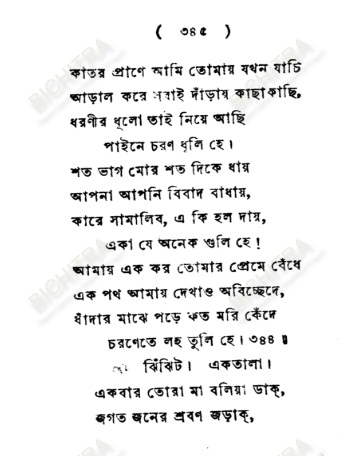 ( ৩৪৫ )
কাতর প্রাণে আমি তোমায় যখন যাচি
আড়াল করে সবাই দাঁড়ায় কাছাকাছি,
ধরণীর ধূলো তাই নিয়ে আছি
পাইনে চরণ ধূলি হে।
শত ভাগ মোর শত দিকে ধায়
আপনা আপনি বিবাদ বাধায়,
কারে সামালিব, এ কি হল দায়,
একা যে অনেক গুলি হে!
আমায় এক কর তোমার প্রেমে বেঁধে
এক পথ আমায় দেখাও অবিচ্ছেদে,
ধাঁদার মাঝে পড়ে কত মরি কেঁদে
চরণেতে লহ তুলি হে। ৩৪৪॥
ঝিঁঝিট। একতালা।
একবার তোরা মা বলিয়া ডাক্,
জগত জনের শ্রবণ জড়াক্,
BICHITRA